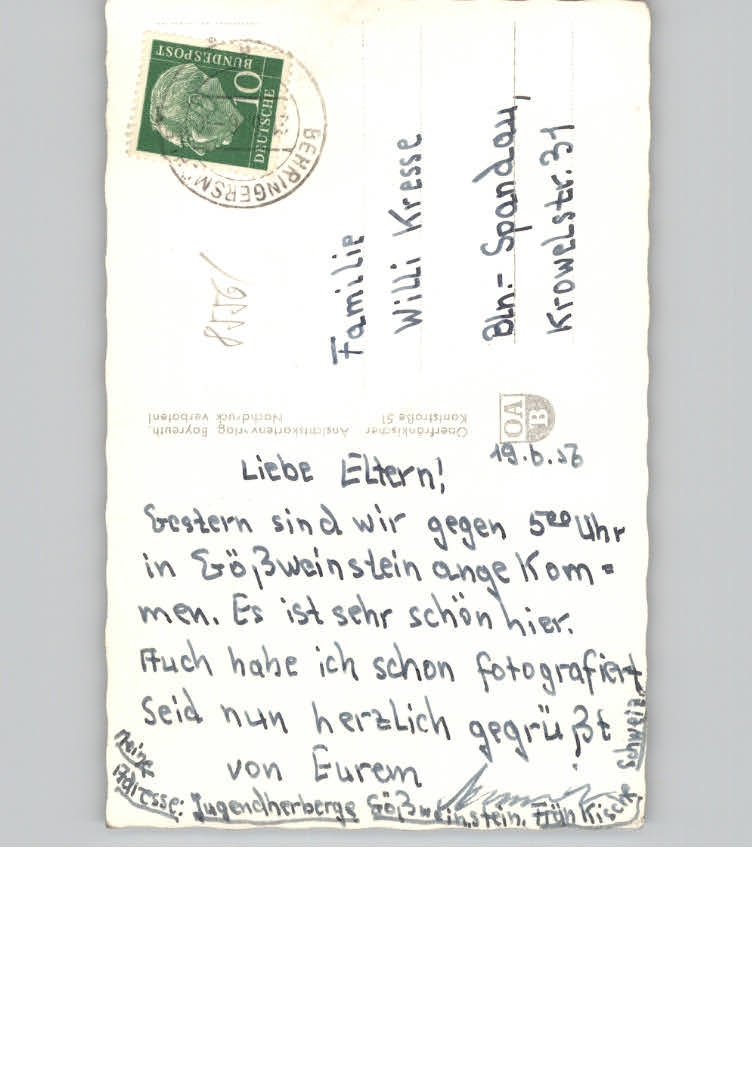 19.6.56
Liebe Eltern!
Gestern sind wir gegen 5⁰⁰ Uhr
in Gößweinstein angekom=
men. Es ist sehr schön hier.
Auch habe ich schon fotografiert
Seid nun herzlich gegrüßt
von Eurem
Meine
Adresse: Jugendherberge Gößweinstein. Fränkische
Schweiz.
Familie
Willi Kresse
Bln.- Spandau,
Krowelstr. 31
Oberfränkischer Ansichtskartenverlag Bayreuth,
Kantstraße 51 Nachdruck verboten!
OA
B
DEUTSCHE
BUNDESPOST
10
BEHRINGERSM